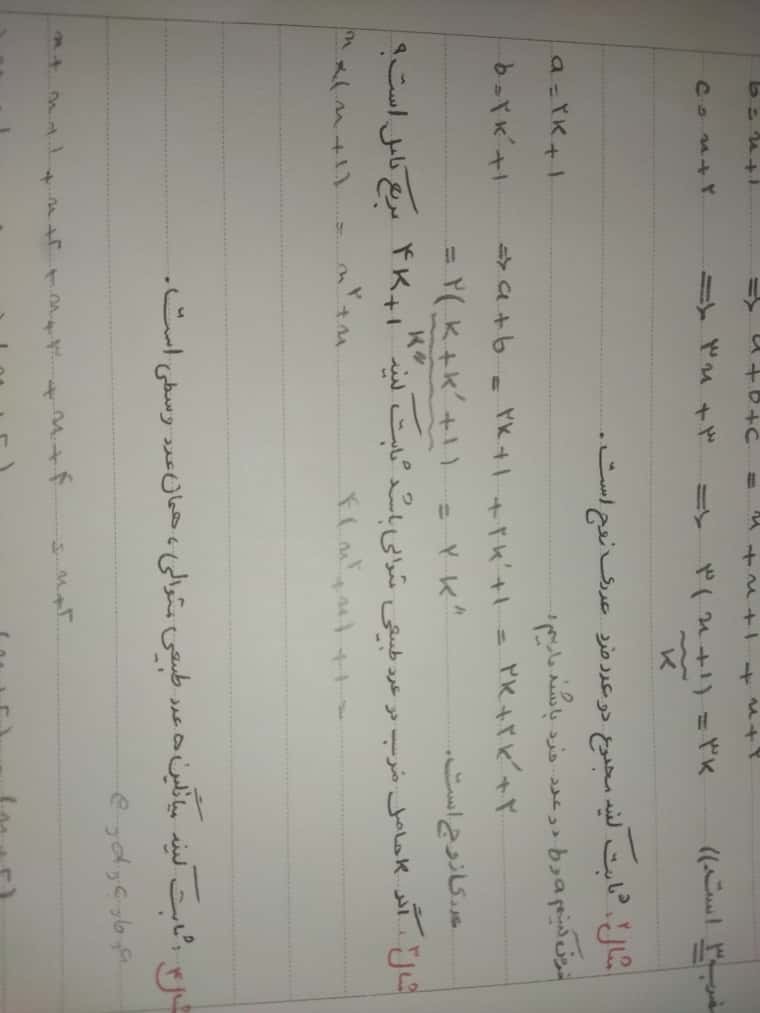 b = n+1 ⇒ a+b+c = n+n+1+n+۲
c = n+۲ ⇒ ۳n+۳ ⇒ ۳(n+1) = ۳k
k
مضرب ۳ است.))
مثال ۲: ثابت کنید مجموع دو عدد فرد عددی زوج است.
فرض کنیم a و b دو عدد فرد باشند داریم:
a = ۲k+1
b = ۲k'+1 ⇒ a+b = ۲k+1+۲k'+1 = ۲k+۲k'+۲
= ۲(k+k'+1) = ۲k" عدد زوج است.
k"
مثال ۳: اگر k حاصل ضرب دو عدد طبیعی متوالی باشد ثابت کنید ۴k+1 مربع کامل است؟
n×(n+1) = n²+n ۴(n²+n)+1 =
مثال ۴: ثابت کنید میانگین ۵ عدد طبیعی متوالی، همان عدد وسطی است.
n+n+1+n+۲+n+۳+n+۴ = n+۲